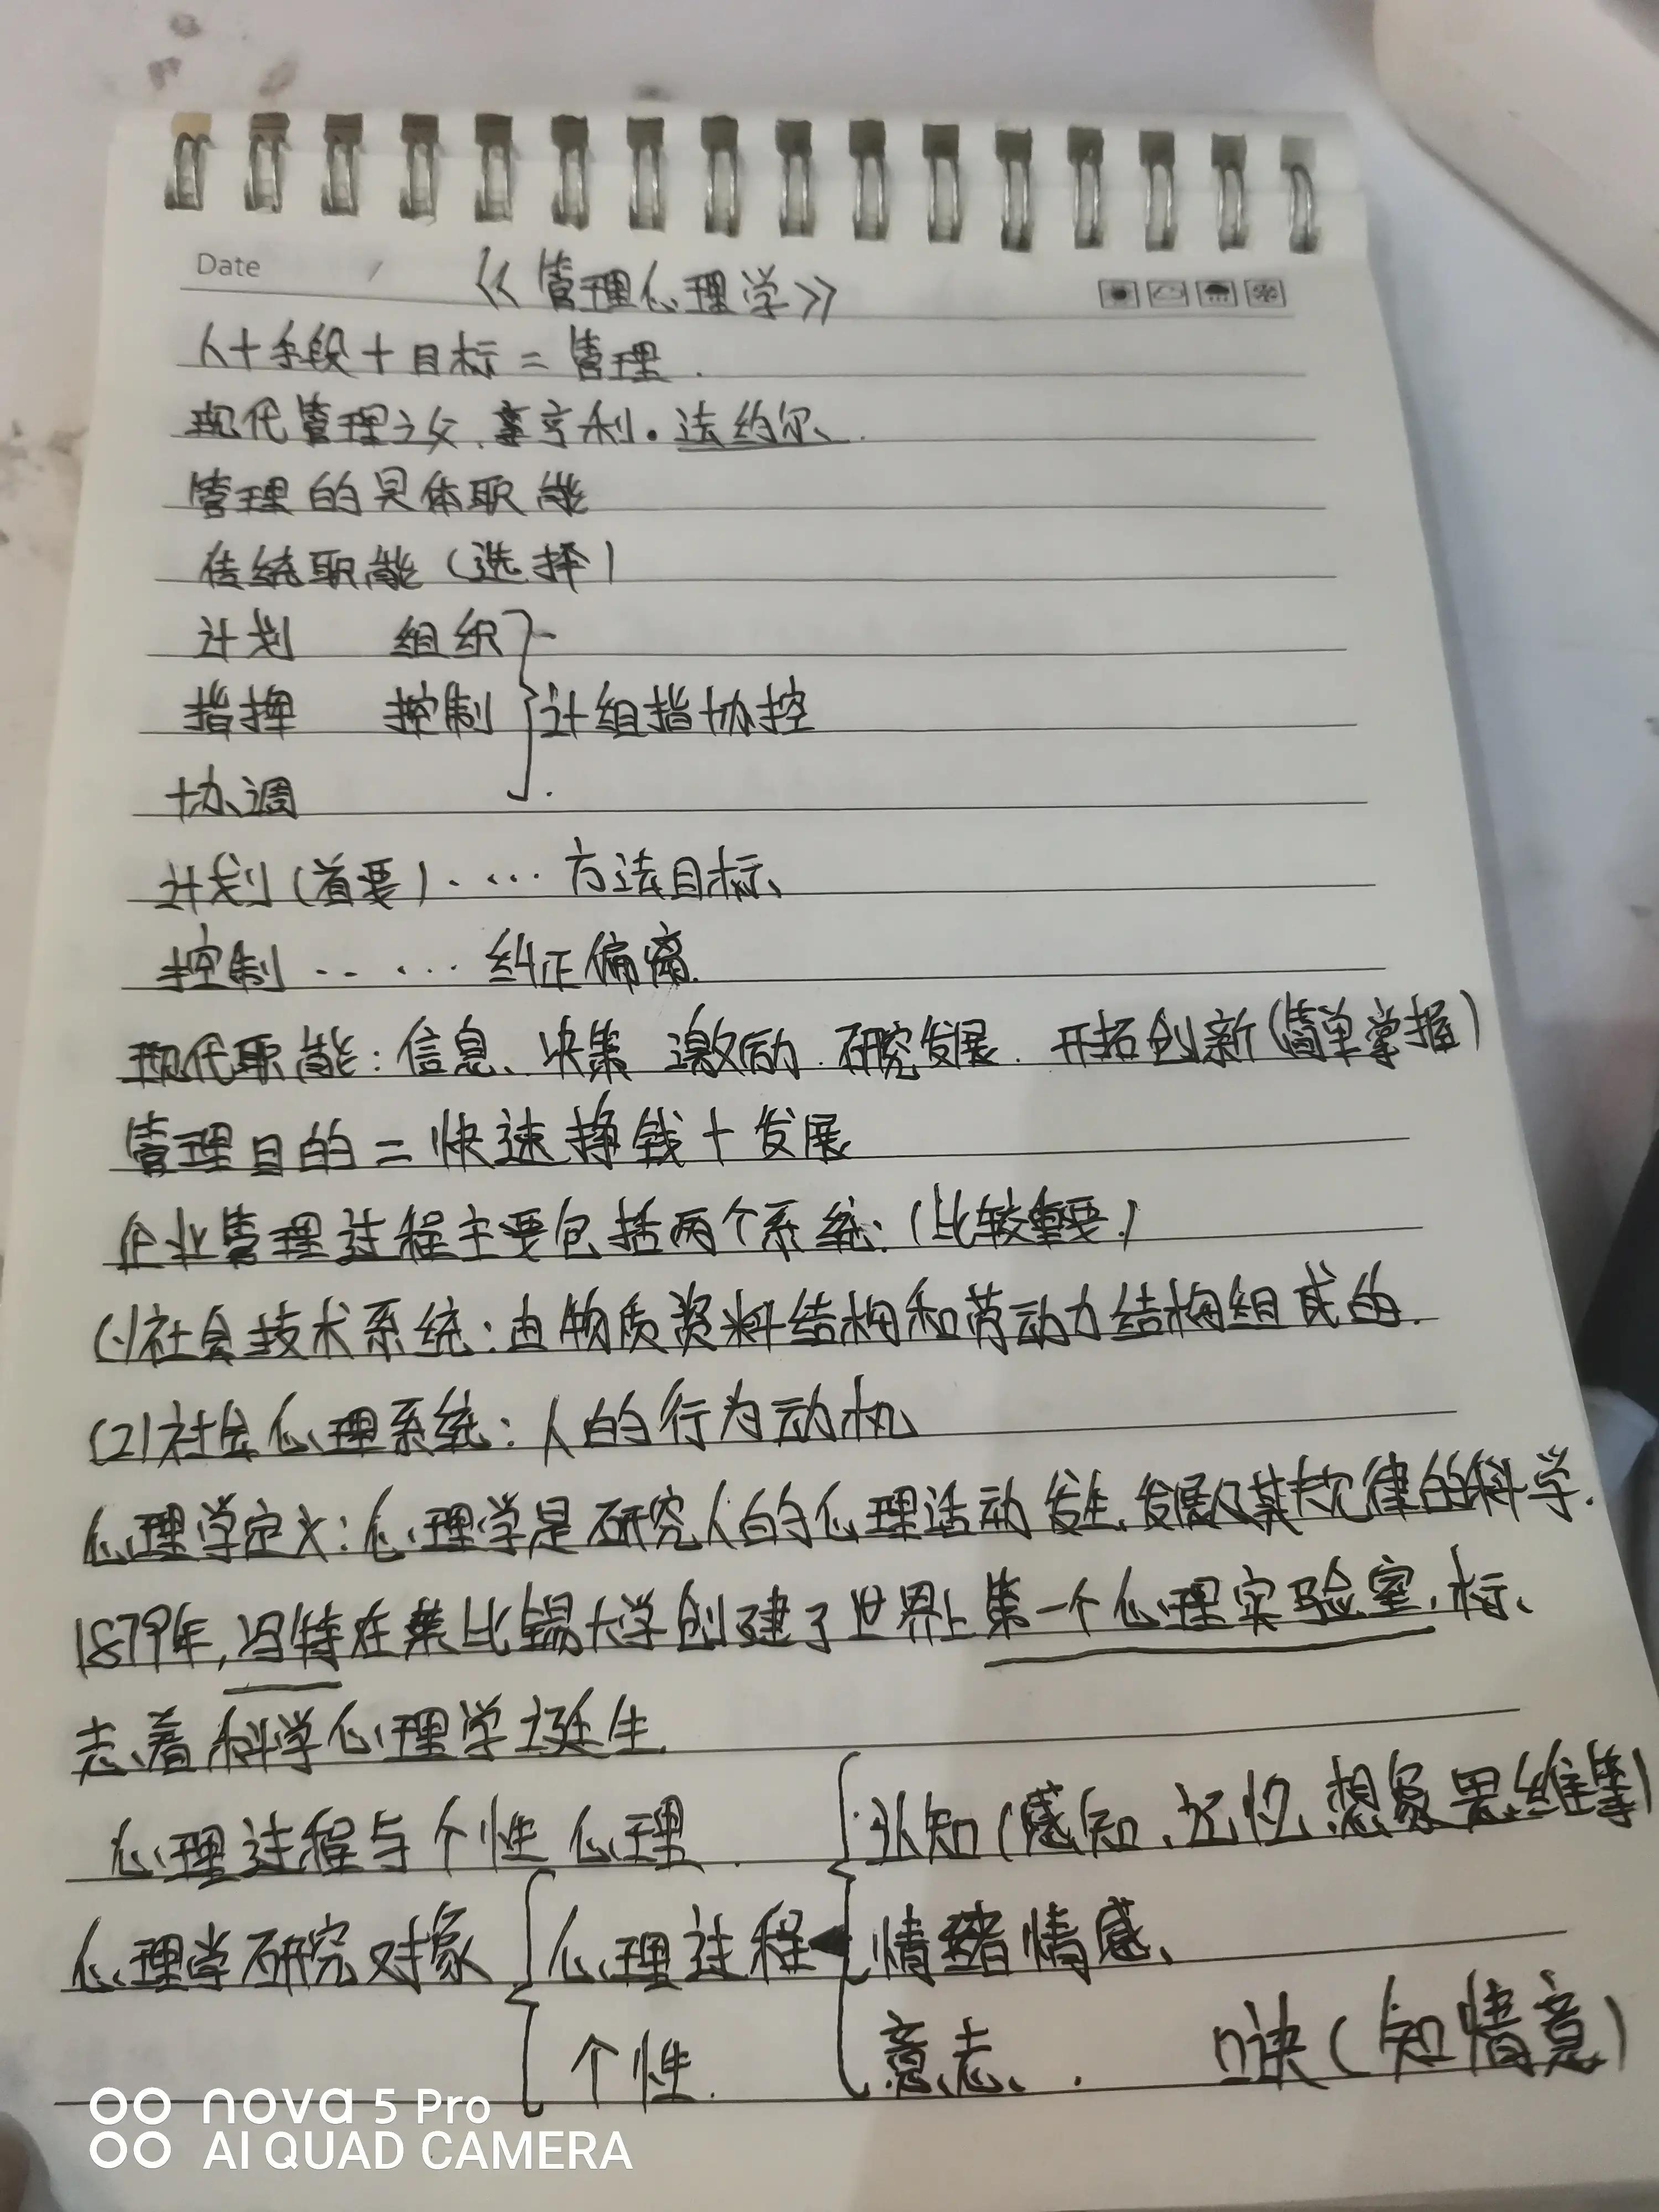 Date
《管理心理学》
人+手段+目标=管理.
现代管理之父.亨利·法约尔.
管理的具体职能
传统职能(选择)
计划 组织
指挥 控制 计组指协控
协调
计划(首要)..... 方法目标
控制..... 纠正偏离.
现代职能:信息、决策 激励.研究发展.开拓创新(简单掌握)
管理目的=快速挣钱+发展
企业管理过程主要包括两个系统:(比较重要)
(1)社会技术系统:由物质资料结构和劳动力结构组成的.
(2)社会心理系统:人的行为动机
心理学定义:心理学是研究人的心理活动发生.发展及其规律的科学.
1879年,冯特在莱比锡大学创建了世界上第一个心理实验室,标
志着科学心理学诞生.
心理过程与个性心理. 认知(感知、记忆、想象思维等)
心理学研究对象 心理过程 情绪情感
个性. 意志. 口诀(知情意)
nova 5 Pro
AI QUAD CAMERA